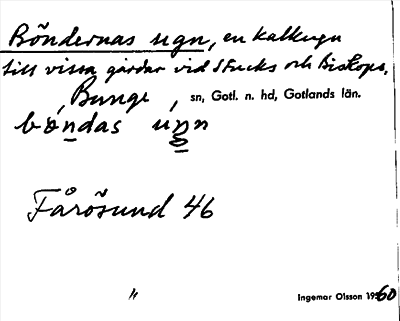 Böndernas ugn, en kalkugn
till vissa gårdar vid Stucks och Biskops,
, Bunge , sn, Gotl. n. hd, Gotlands län.
bøndas ugn
Fårösund 46
"
Ingemar Olsson 1960